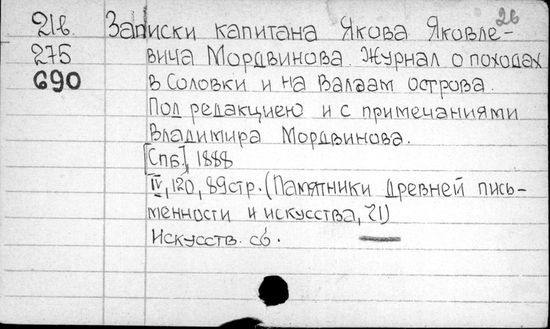 26
21в. Записки капитана Якова Яковле-
275 вича Мордвинова. Журнал о походах
690 в Соловки и на Валаам острова.
Под редакциею и с примечаниями
Владимира Мордвинова.
[Спб.], 1888
IV, 120, 89 стр. (Памятники древней пись-
менности и искусства, 71)
Искусств. сб.